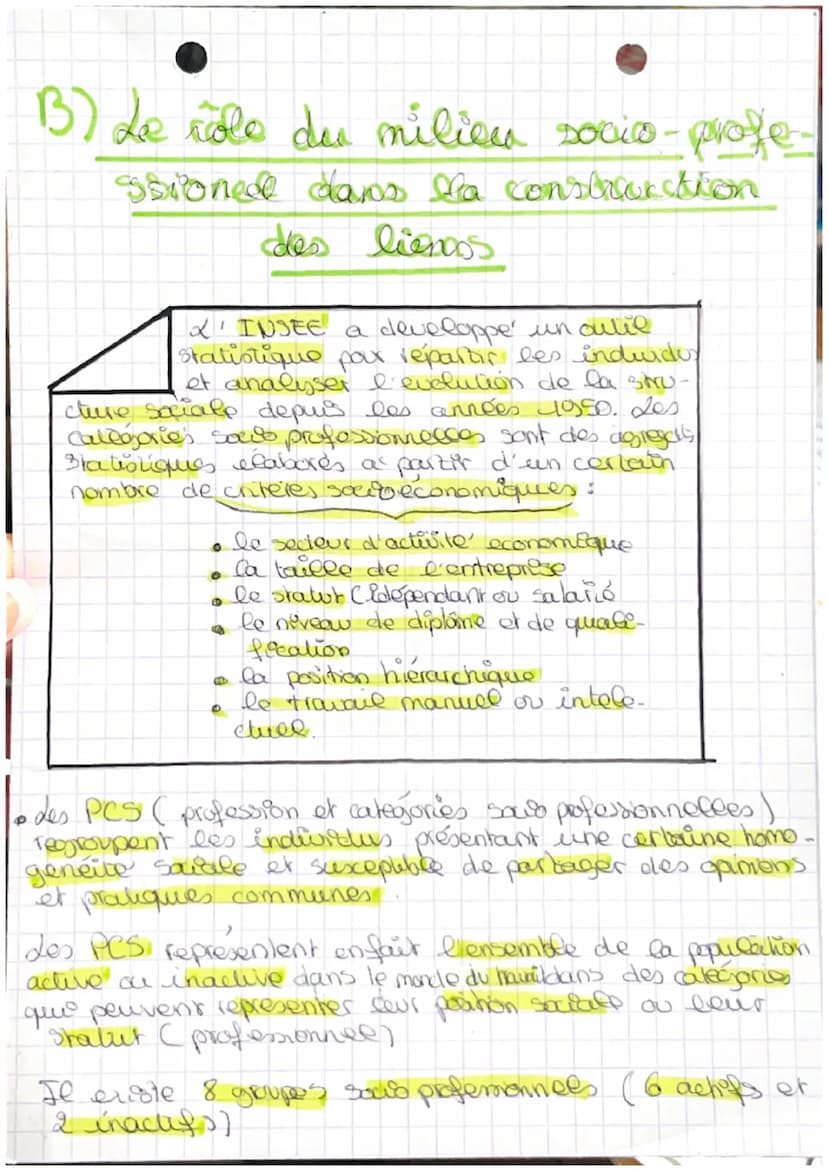 B) Le rôle du milieu socio-profe-
ssionel dans la construction
des liens
L'INSEE a developpé un outil
statistique pour répartir les individus
et analyser l'evolution de la stru-
cture sociale depuis les années 1950. Les
catégories socio professionnelles sont des agregats
statistiques elaborés a partir d'un certain
nombre de criteres socioéconomiques :
• le secteur d'activité economique
• la taille de l'entreprise
• le statut (idépendant ou salarié
• le niveau de diplôme et de quali-
fication
• la position hiérarchique
• le travail manuel ou intele-
ctuel.
• Les PCS ( profession et catégories socio professionnelles )
regroupent les individus présentant une certaine homo-
généité sociale et susceptible de partager des opinions
et pratiques communes.
Les PCS représentent enfait l'ensemble de la population
active ou inactive dans le monde du travail dans des catégories
qui peuvent representer leur position sociale ou leur
statut ( professionnel)
Il existe 8 groupes socio professionnels ( 6 actifs et
2 inactifs)